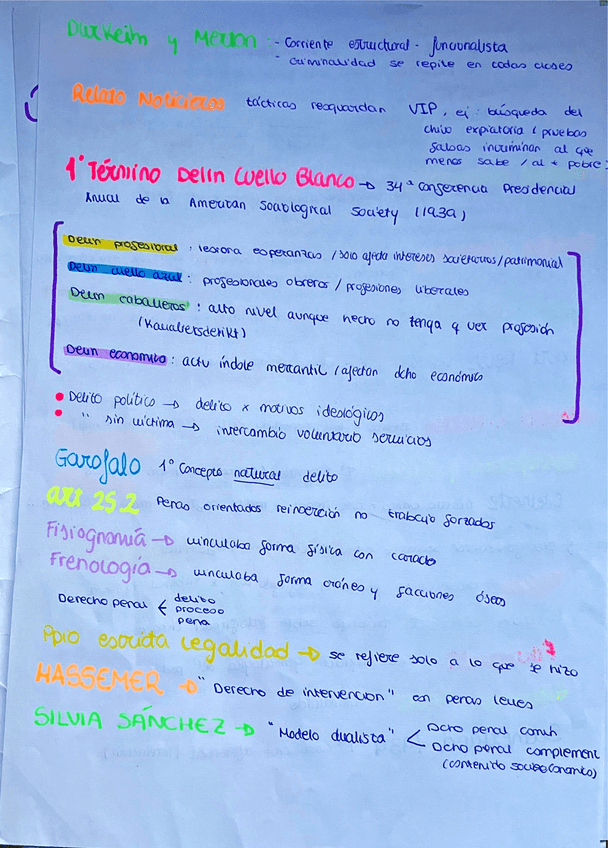 Durkeim y Merton :- Corriente estructural - funcionalista
- criminalidad se repite en todas clases
Relato Noticieros tácticas resguardan VIP, ej: búsqueda del
chivo expiatorio (pruebas
falsas incriminan al que
menos sabe / al + pobre)
1º Término Delin Cuello Blanco → 34ª conferencia Presidencial
Anual de la American Sociological Society (1939)
Delin profesional : lesiona esperanzas / solo afecta intereses societarios/patrimonial
Delin cuello azul : profesionales obreros / profesiones liberales
Delin caballeros : alto nivel aunque hecho no tenga q ver profesión
(Kavaliersdelikt)
Delin economico : activ índole mercantil / afectan dcho económico
• Delito político → delito x motivos ideológicos
• " sin víctima → intercambio voluntario servicios
Garofalo 1º Concepto natural delito
art 25.2 Penas orientadas reinserción no trabajo forzados
Fisiognomía → vinculaba forma física con caracter
Frenología → vinculaba forma cráneo y facciones óseas
Derecho penal < delito
proceso
pena
Ppio estricta legalidad → se refiere solo a lo que se hizo
HASSEMER → "Derecho de intervencion" con penas leves
SILVIA SÁNCHEZ → "Modelo dualista" < Dcho penal común
Dcho penal complement
(contenido socioeconomico)